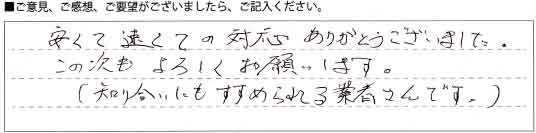 ■ご意見、ご感想、ご要望がございましたら、ご記入ください。
安くて速くての対応ありがとうございました.
この次もよろしくお願いします。
(知り合いにもすすめられる業者さんです。)